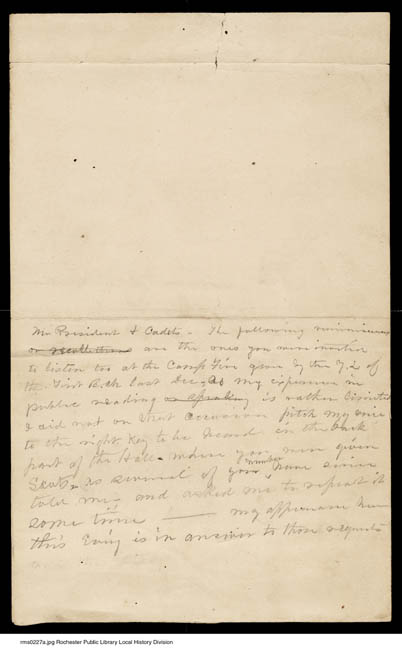 Mr President & Cadets - The following reminiscences
or recollections are the ones you were invited
to listen too at the Camp Fire given by the Y.L of
the First Bch last Dec, As my experience in
public reading or speaking is rather limited
I did not on that occasion pitch my voice
to the right Key to be heard in the back
part of the Hall where you were given
Seats as several of your number have since
told me and asked me to repeat it
some time — my appearance here
this Evng is in answer to those requests
rms0227a.jpg Rochester Public Library Local History Division